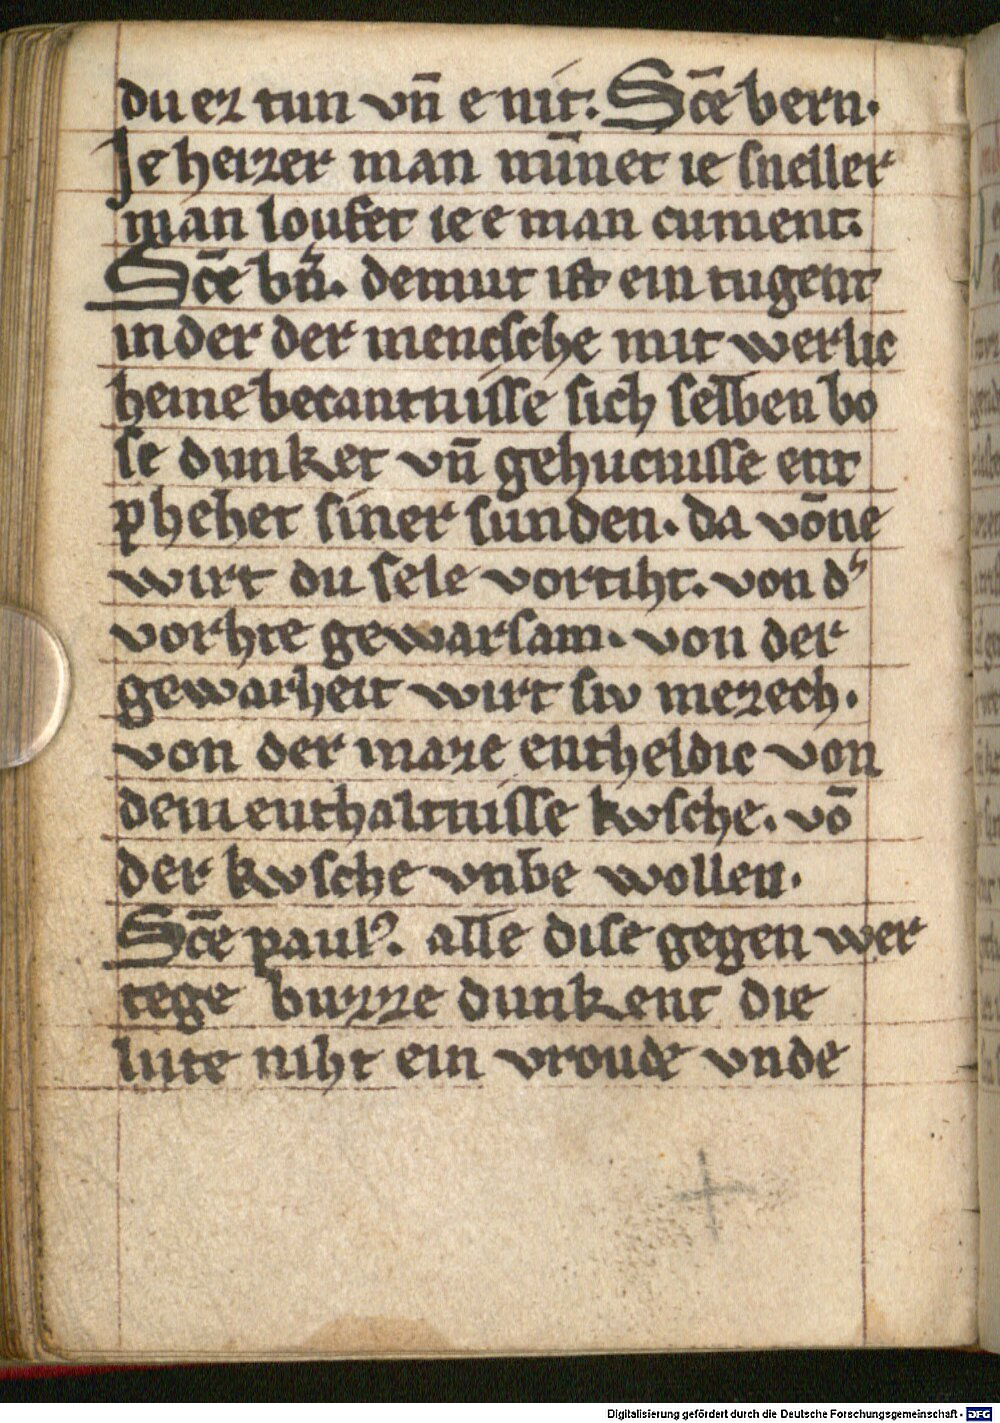 du ez tun vn̄ e nit. Sc̄e bern.
Je heizer man mīnet ie sneller
man loufet ie e man cument.
Sc̄e bn̄. demut ist ein tugent
in der der mencsche mit werlic
heme becantnisse sich selben bo
se dunket vn̄ gehucnisse ent
phehet siner sunden. da vōne
wirt du sele vortiht. von d'
vorhte gewarsam. von der
gewarheit wirt siv mezech.
von der maze entheldic von
dem enthaltnisse kvsche. vō
der kvsche vnbe wollen.
Sc̄e paul9. alle dise gegen wer
tege buzze dunkent die
lute niht ein vroude vnde
Digitalisierung gefördert durch die Deutsche Forschungsgemeinschaft - DFG